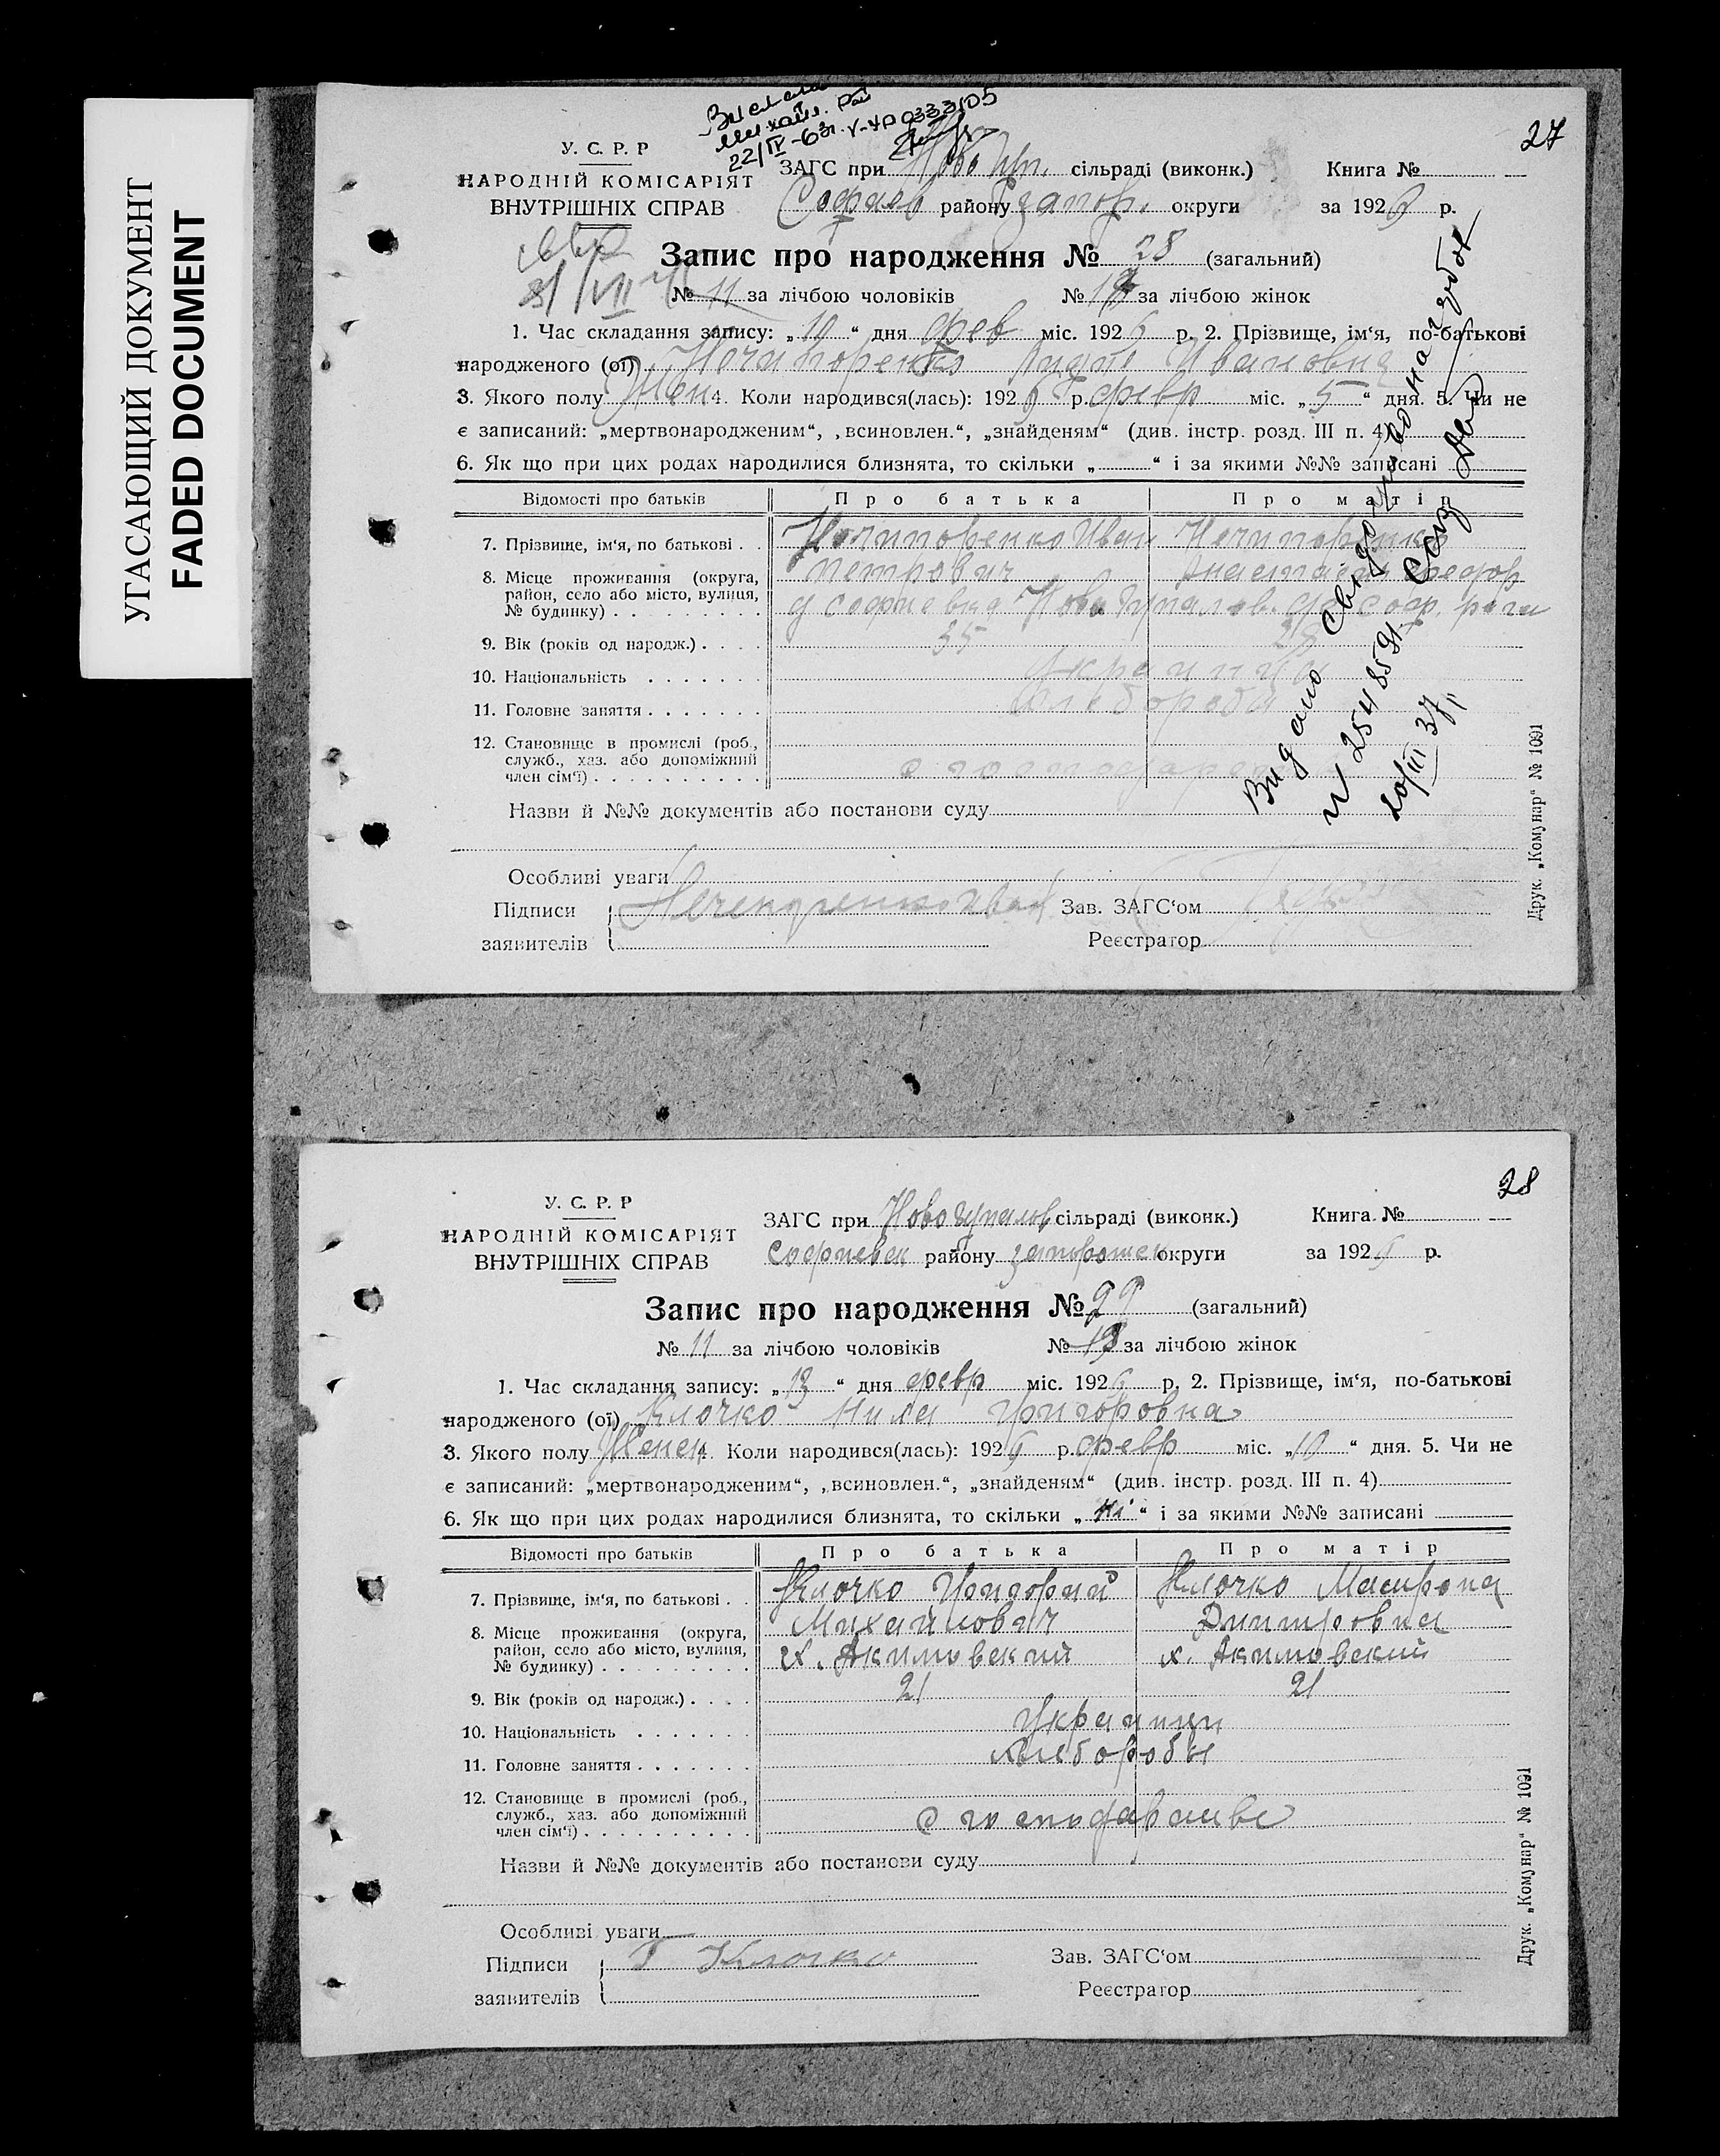 УГАСАЮЩИЙ ДОКУМЕНТ
FADED DOCUMENT
27
22/IV-63г. V-ЯР 0333105
У. С. Р. Р
НАРОДНІЙ КОМІСАРІЯТ
ВНУТРІШНІХ СПРАВ
ЗАГС при Ново Гуп. сільраді (виконк.) Книга №
Софиев району Запор. округи за 1926 р.
Запис про народження № 28 (загальний)
№ 11 за лічбою чоловіків № за лічбою жінок
1. Час складання запису: „10“ дня фев міс. 1926 р. 2. Прізвище, ім'я, по-батькові
народженого (ої) Нечипоренко Ивановна
3. Якого полу Жен 4. Коли народився(лась): 1926 р. февр міс. „5“ дня. 5. Чи не
є записаний: „мертвонародженим“, „всиновлен.“, „знайденям“ (див. інстр. розд. III п. 4)
6. Як що при цих родах народилися близнята, то скільки „ “ і за якими №№ записані
Відомості про батьків Про батька Про матір
7. Прізвище, ім'я, по батькові . . Нечипоренко Иван Нечипоренко
Петрович Анастасия Федор
8. Місце проживання (округа, район, село або місто, вулиця, № будинку) . . . с Софиевка Ново Гупалов. с/с Соф. рагu
9. Вік (років од народж.) . . . . 35
10. Національність . . . . . . . Украинци
11. Головне заняття . . . . . . . Хлебороби
12. Становище в промислі (роб., служб., хаз. або допоміжний член сім'ї) . . . . . . . . . . с господарства
Видано свидо
№ 2548591.
20/III 37
Назви й №№ документів або постанови суду
Особливі уваги
Підписи Нечепуренко Иван Зав. ЗАГС'ом
заявителів Реєстратор
Друк. „Комунар“ № 1091
28
У. С. Р. Р
НАРОДНІЙ КОМІСАРІЯТ
ВНУТРІШНІХ СПРАВ
ЗАГС при Ново Гупалов сільраді (виконк.) Книга №
Софиевск району Запорожск округи за 1926 р.
Запис про народження № 29 (загальний)
№ 11 за лічбою чоловіків № 18 за лічбою жінок
1. Час складання запису: „13“ дня февр міс. 1926 р. 2. Прізвище, ім'я, по-батькові
народженого (ої) Клочко Нила Григоровна
3. Якого полу Женск 4. Коли народився(лась): 1926 р. февр міс. „10“ дня. 5. Чи не
є записаний: „мертвонародженим“, „всиновлен.“, „знайденям“ (див. інстр. розд. III п. 4)
6. Як що при цих родах народилися близнята, то скільки „ні“ і за якими №№ записані
Відомості про батьків Про батька Про матір
7. Прізвище, ім'я, по батькові . . Клочко Григорий Клочко Матрона
Михайлович Дмитровна
8. Місце проживання (округа, район, село або місто, вулиця, № будинку) . . . х. Акимовский х. Акимовский
9. Вік (років од народж.) . . . . 21 21
10. Національність . . . . . . . Украинци
11. Головне заняття . . . . . . . Хлебороби
12. Становище в промислі (роб., служб., хаз. або допоміжний член сім'ї) . . . . . . . . . . с господарстве
Назви й №№ документів або постанови суду
Особливі уваги
Підписи Г Клочко Зав. ЗАГС'ом
заявителів Реєстратор
Друк. „Комунар“ № 1091